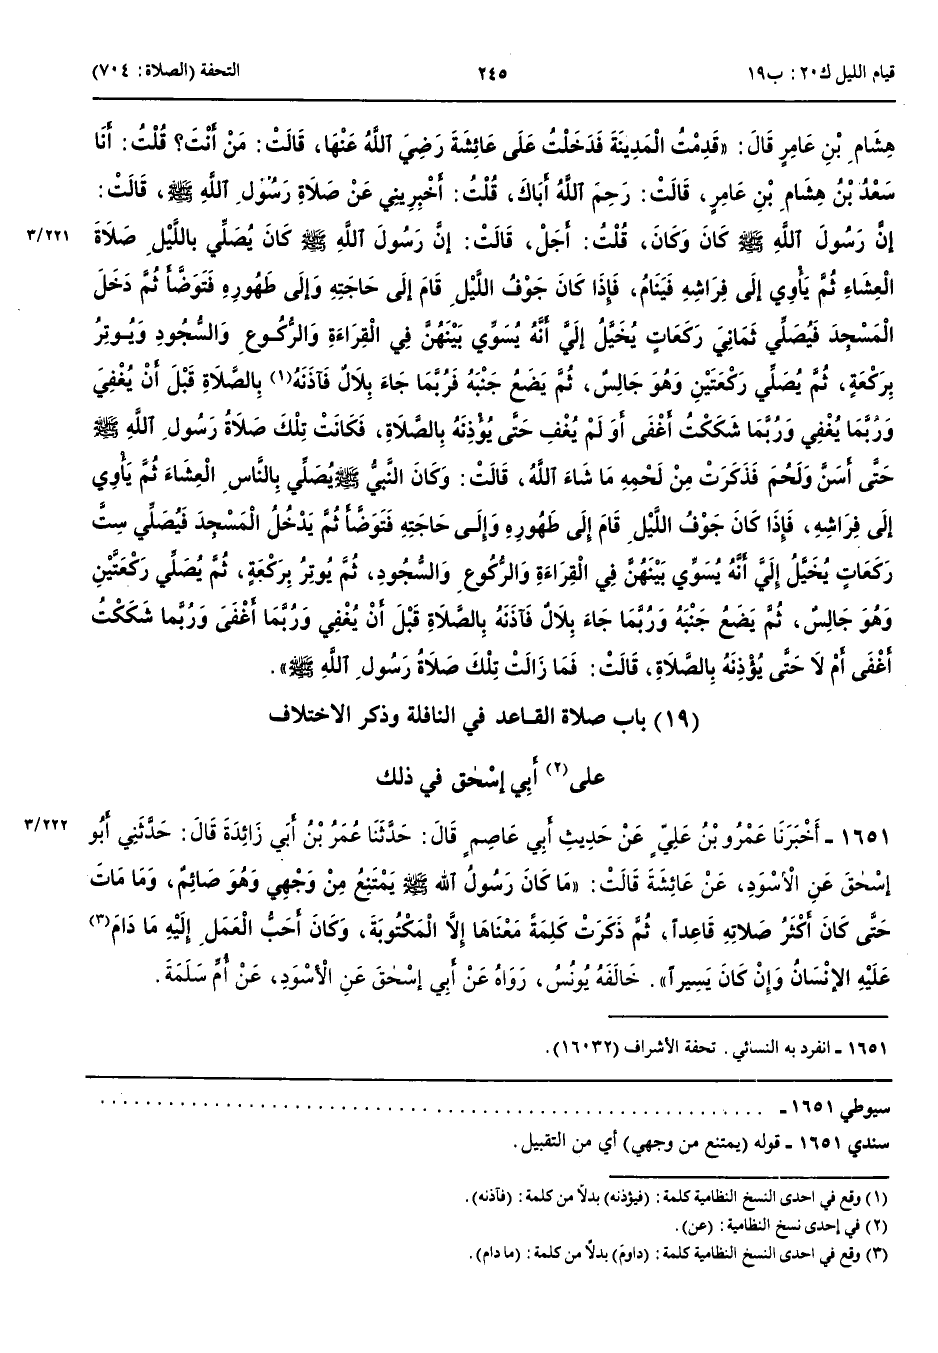 قيام الليل ك٢٠: ب١٩ ٢٤٥ التحفة (الصلاة: ٧٠٤)
هِشَامِ بْنِ عَامِرٍ قَالَ: «قَدِمْتُ الْمَدِينَةَ فَدَخَلْتُ عَلَى عَائِشَةَ رَضِيَ اللَّهُ عَنْهَا، قَالَتْ: مَنْ أَنْتَ؟ قُلْتُ: أَنَا
سَعْدُ بْنُ هِشَامِ بْنِ عَامِرٍ، قَالَتْ: رَحِمَ اللَّهُ أَبَاكَ، قُلْتُ: أَخْبِرِينِي عَنْ صَلَاةِ رَسُولِ اللَّهِ ﷺ، قَالَتْ:
إِنَّ رَسُولَ اللَّهِ ﷺ كَانَ وَكَانَ، قُلْتُ: أَجَلْ، قَالَتْ: إِنَّ رَسُولَ اللَّهِ ﷺ كَانَ يُصَلِّي بِاللَّيْلِ صَلَاةَ ٣/٢٢١
الْعِشَاءِ ثُمَّ يَأْوِي إِلَى فِرَاشِهِ فَيَنَامُ، فَإِذَا كَانَ جَوْفُ اللَّيْلِ قَامَ إِلَى حَاجَتِهِ وَإِلَى طَهُورِهِ فَتَوَضَّأَ ثُمَّ دَخَلَ
الْمَسْجِدَ فَيُصَلِّي ثَمَانِيَ رَكَعَاتٍ يُخَيَّلُ إِلَيَّ أَنَّهُ يُسَوِّي بَيْنَهُنَّ فِي الْقِرَاءَةِ وَالرُّكُوعِ وَالسُّجُودِ وَيُوتِرُ
بِرَكْعَةٍ، ثُمَّ يُصَلِّي رَكْعَتَيْنِ وَهُوَ جَالِسٌ، ثُمَّ يَضَعُ جَنْبَهُ فَرُبَّمَا جَاءَ بِلَالٌ فَآذَنَهُ(١) بِالصَّلَاةِ قَبْلَ أَنْ يُغْفِيَ
وَرُبَّمَا يُغْفِي وَرُبَّمَا شَكَكْتُ أَغْفَى أَوَلَمْ يُغْفِ حَتَّى يُؤْذِنَهُ بِالصَّلَاةِ، فَكَانَتْ تِلْكَ صَلَاةُ رَسُولِ اللَّهِ ﷺ
حَتَّى أَسَنَّ وَلَحُمَ فَذَكَرَتْ مِنْ لَحْمِهِ مَا شَاءَ اللَّهُ، قَالَتْ: وَكَانَ النَّبِيُّ ﷺ يُصَلِّي بِالنَّاسِ الْعِشَاءَ ثُمَّ يَأْوِي
إِلَى فِرَاشِهِ، فَإِذَا كَانَ جَوْفُ اللَّيْلِ قَامَ إِلَى طَهُورِهِ وَإِلَى حَاجَتِهِ فَتَوَضَّأَ ثُمَّ يَدْخُلُ الْمَسْجِدَ فَيُصَلِّي سِتَّ
رَكَعَاتٍ يُخَيَّلُ إِلَيَّ أَنَّهُ يُسَوِّي بَيْنَهُنَّ فِي الْقِرَاءَةِ وَالرُّكُوعِ وَالسُّجُودِ، ثُمَّ يُوتِرُ بِرَكْعَةٍ، ثُمَّ يُصَلِّي رَكْعَتَيْنِ
وَهُوَ جَالِسٌ، ثُمَّ يَضَعُ جَنْبَهُ وَرُبَّمَا جَاءَ بِلَالٌ فَآذَنَهُ بِالصَّلَاةِ قَبْلَ أَنْ يُغْفِيَ وَرُبَّمَا أَغْفَى وَرُبَّمَا شَكَكْتُ
أَغْفَى أَمْ لَا حَتَّى يُؤْذِنَهُ بِالصَّلَاةِ، قَالَتْ: فَمَا زَالَتْ تِلْكَ صَلَاةُ رَسُولِ اللَّهِ ﷺ».
(١٩) باب صلاة القاعد في النافلة وذكر الاختلاف
على(٢) أَبِي إِسْحٰق في ذلك
١٦٥١ - أَخْبَرَنَا عَمْرُو بْنُ عَلِيٍّ عَنْ حَدِيثِ أَبِي عَاصِمٍ قَالَ: حَدَّثَنَا عُمَرُ بْنُ أَبِي زَائِدَةَ قَالَ: حَدَّثَنِي أَبُو ٣/٢٢٢
إِسْحٰقَ عَنِ الْأَسْوَدِ، عَنْ عَائِشَةَ قَالَتْ: «مَا كَانَ رَسُولُ الله ﷺ يَمْتَنِعُ مِنْ وَجْهِي وَهُوَ صَائِمٌ، وَمَا مَاتَ
حَتَّى كَانَ أَكْثَرُ صَلَاتِهِ قَاعِداً، ثُمَّ ذَكَرَتْ كَلِمَةً مَعْنَاهَا إِلَّا الْمَكْتُوبَةَ، وَكَانَ أَحَبُّ الْعَمَلِ إِلَيْهِ مَا دَامَ(٣)
عَلَيْهِ الإِنْسَانُ وَإِنْ كَانَ يَسِيراً». خَالَفَهُ يُونُسُ، رَوَاهُ عَنْ أَبِي إِسْحٰقَ عَنِ الْأَسْوَدِ، عَنْ أُمِّ سَلَمَةَ.
١٦٥١ - انفرد به النسائي. تحفة الأشراف (١٦٠٣٢).
سيوطي ١٦٥١ - ..........................................................
سندي ١٦٥١ - قوله (يمتنع من وجهي) أي من التقبيل.
(١) وقع في احدى النسخ النظامية كلمة: (فيؤذنه) بدلاً من كلمة: (فآذنه).
(٢) في إحدى نسخ النظامية: (عن).
(٣) وقع في احدى النسخ النظامية كلمة: (داومَ) بدلاً من كلمة: (ما دام).